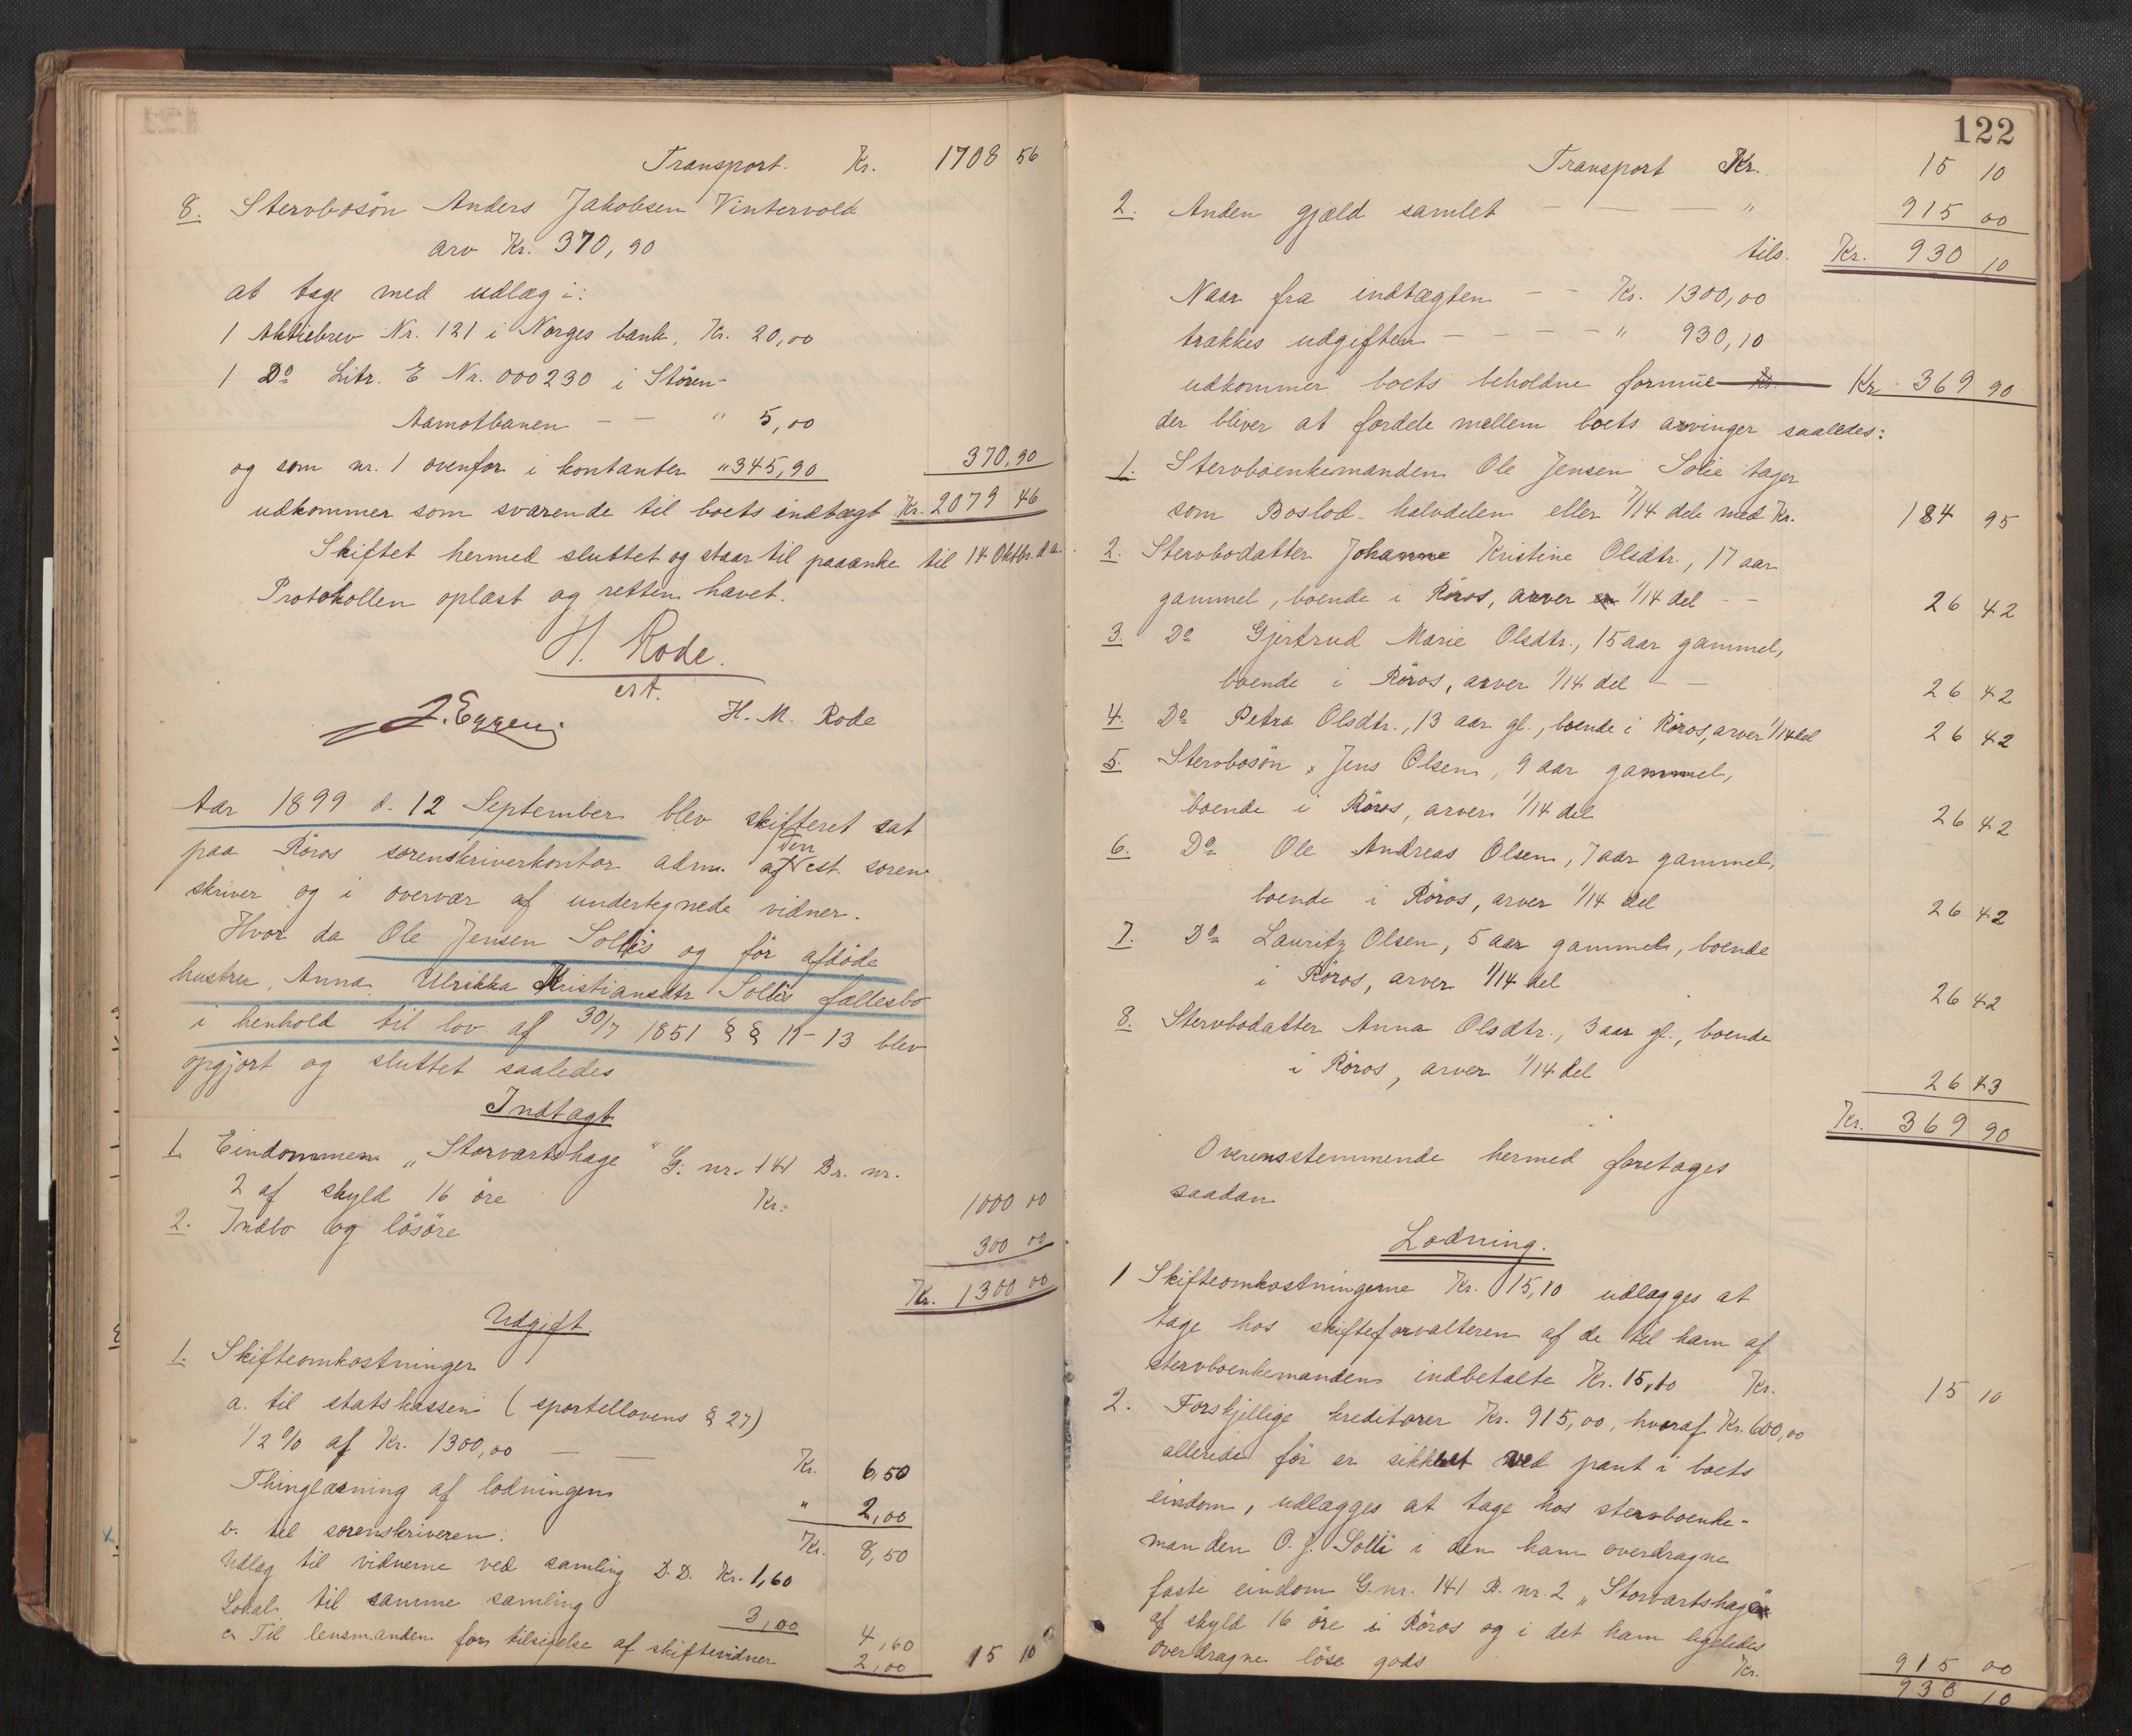 Transport. Kr. 1708 56
8. Stervbosön Anders Jakobsen Vintervold
arv Kr. 370,90
at tage med udlæg i:
1 Aktiebrev Nr. 121 i Norges bank, Kr. 20,00
1 Do Litr. E Nr. 000230 i Stören-
Aamotbanen — — " 5,00
og som nr. 1 ovenfor i kontanter " 345,90 370,90
udkommer som svarende til boets indtægt Kr. 2079 46
Skiftet hermed sluttet og staar til paaanke til 14 Oktbr. d.a.
Protokollen oplæst og retten hævet.
H. Rode.
cst.
J. Eggen H. M. Rode
Aar 1899 d. 12 September blev skifteret sat
paa Röros sorenskriverkontor adm. af den cst. soren-
skriver og i overvær af undertegnede vidner.
Hvor da Ole Jensen Sollis og før afdöde
hustru, Anna Ulrikka Kristiansdtr Sollis fællesbo
i henhold til lov af 30/7 1851 § § 11-13 blev
opgjort og sluttet saaledes
Indtægt
1. Eindommen „Storvartshage" G. nr. 141 Br. nr.
2 af skyld 16 öre Kr. 1000 00
2. Indbo og lösöre 300 00
Kr. 1300 00
Udgift.
1. Skifteomkostninger
a. til statskassen (sportellovens § 27)
1/2 % af Kr. 1300,00 — — Kr. 6,50
Thinglæsning af lodningen " 2,00
b. til sorenskriveren: Kr. 8,50
Udlæg til vidnerne ved samling D.D. Kr. 1,60
Lokal til samme samling 3,00 4,60
c. Til lensmanden for tilsigelse af skiftevidner 2,00 15 10
122
Transport Kr. 15 10
2. Anden gjæld samlet — — — " 915 00
tils. Kr. 930 10
Naar fra indtægten - - Kr. 1300,00
trækkes udgiften - - - - " 930,10
udkommer boets beholdne formue Kr. 369 90
der bliver at fordele mellem boets arvinger saaledes:
1. Stervboenkemanden Ole Jensen Solie tager
som Boslod halvdelen eller 7/14 dele med Kr. 184 95
2. Stervbodatter Johanne Kristine Olsdtr., 17 aar
gammel, boende i Röros, arver 1/14 del - - 26 42
3. Do Gjertrud Marie Olsdtr., 15 aar gammel,
boende i Röros, arver 1/14 del - - 26 42
4. Do Petra Olsdtr., 13 aar gl., boende i Röros, arver 1/14 del 26 42
5. Stervbosön, Jens Olsen, 9 aar gammel,
boende i Röros, arver 1/14 del 26 42
6. Do Ole Andreas Olsen, 7 aar gammel,
boende i Röros, arver 1/14 del 26 42
7. Do Lauritz Olsen, 5 aar gammel, boende
i Röros, arver 1/14 del 26 42
8. Stervbodatter Anna Olsdtr., 3 aar gl., boende
i Röros, arver 1/14 del 26 43
Kr. 369 90
Overensstemmende hermed foretages
saadan
Lodning.
1 Skifteomkostningerne Kr. 15,10 udlægges at
tage hos skifteforvalteren af de til ham af
stervboenkemanden indbetalte Kr. 15,10 Kr. 15 10
2. Forskjellige kreditorer Kr. 915,00, hvoraf Kr. 600,00
allerede før er sikkret ved pant i boets
eindom, udlægges at tage hos stervboenke-
manden O. J. Solli i den ham overdragne
faste eindom G. nr. 141 B. nr. 2 „Storvartshage"
af skyld 16 öre i Röros og i det ham ligeledes
overdragne löse gods Kr. 915 00
930 10